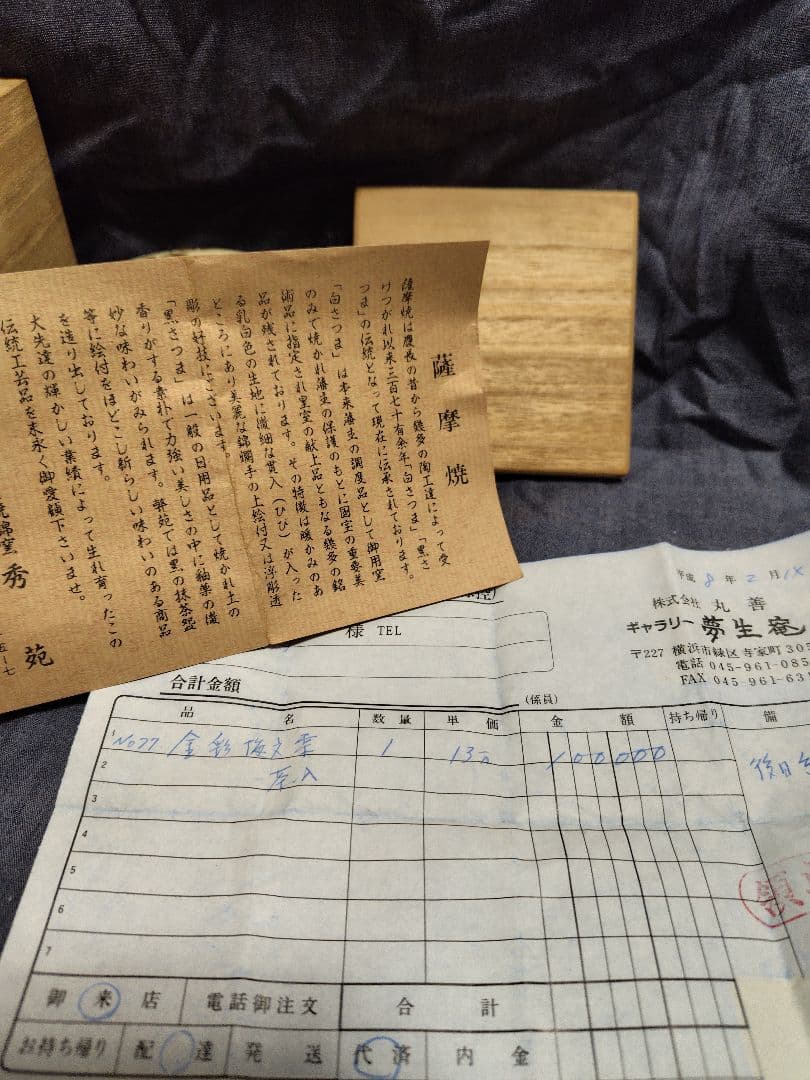 薩摩焼
薩摩焼は慶長の昔から幾多の陶工達によって受
けつがれ以来三百七十有余年「白さつま」「黒さ
つま」の伝統となって現在に伝承されております。
「白さつま」は本来藩主の調度品として御用窯
のみで焼かれ藩主の保護のもとに国宝の重要美
術品に指定され皇室の献上品ともなる幾多の銘
品が残されております。その特徴は暖かみのあ
る乳白色の生地に微細な貫入（ひび）が入った
ところにあり美麗な錦襴手の上絵付又は浮彫透
彫の妙技にございます。
「黒さつま」は一般の日用品として焼かれ土の
香りがする素朴で力強い美しさの中に釉薬の微
妙な味わいがみられます。弊苑では黒の抹茶盌
等に絵付をほどこし新らしい味わいのある商品
を造り出しております。
大先達の輝かしい業績によって生れ育ったこの
伝統工芸品を末永く御愛顧下さいませ。
錦窯 秀苑
五ー七
平成 8年 2月
株式会社 丸善
ギャラリー 夢生庵
〒227 横浜市緑区寺家町305
電話 045-961-085
FAX 045-961-631
様 TEL
合計金額
(係員)
品名 数量 単価 金額 持ち帰り 備
1 No77 金彩梅文 1 13万 100000 後日
2 茶入
3
4
5
6
7
御来店 電話御注文 合計
お持ち帰り 配達 発送 代済 内金
領